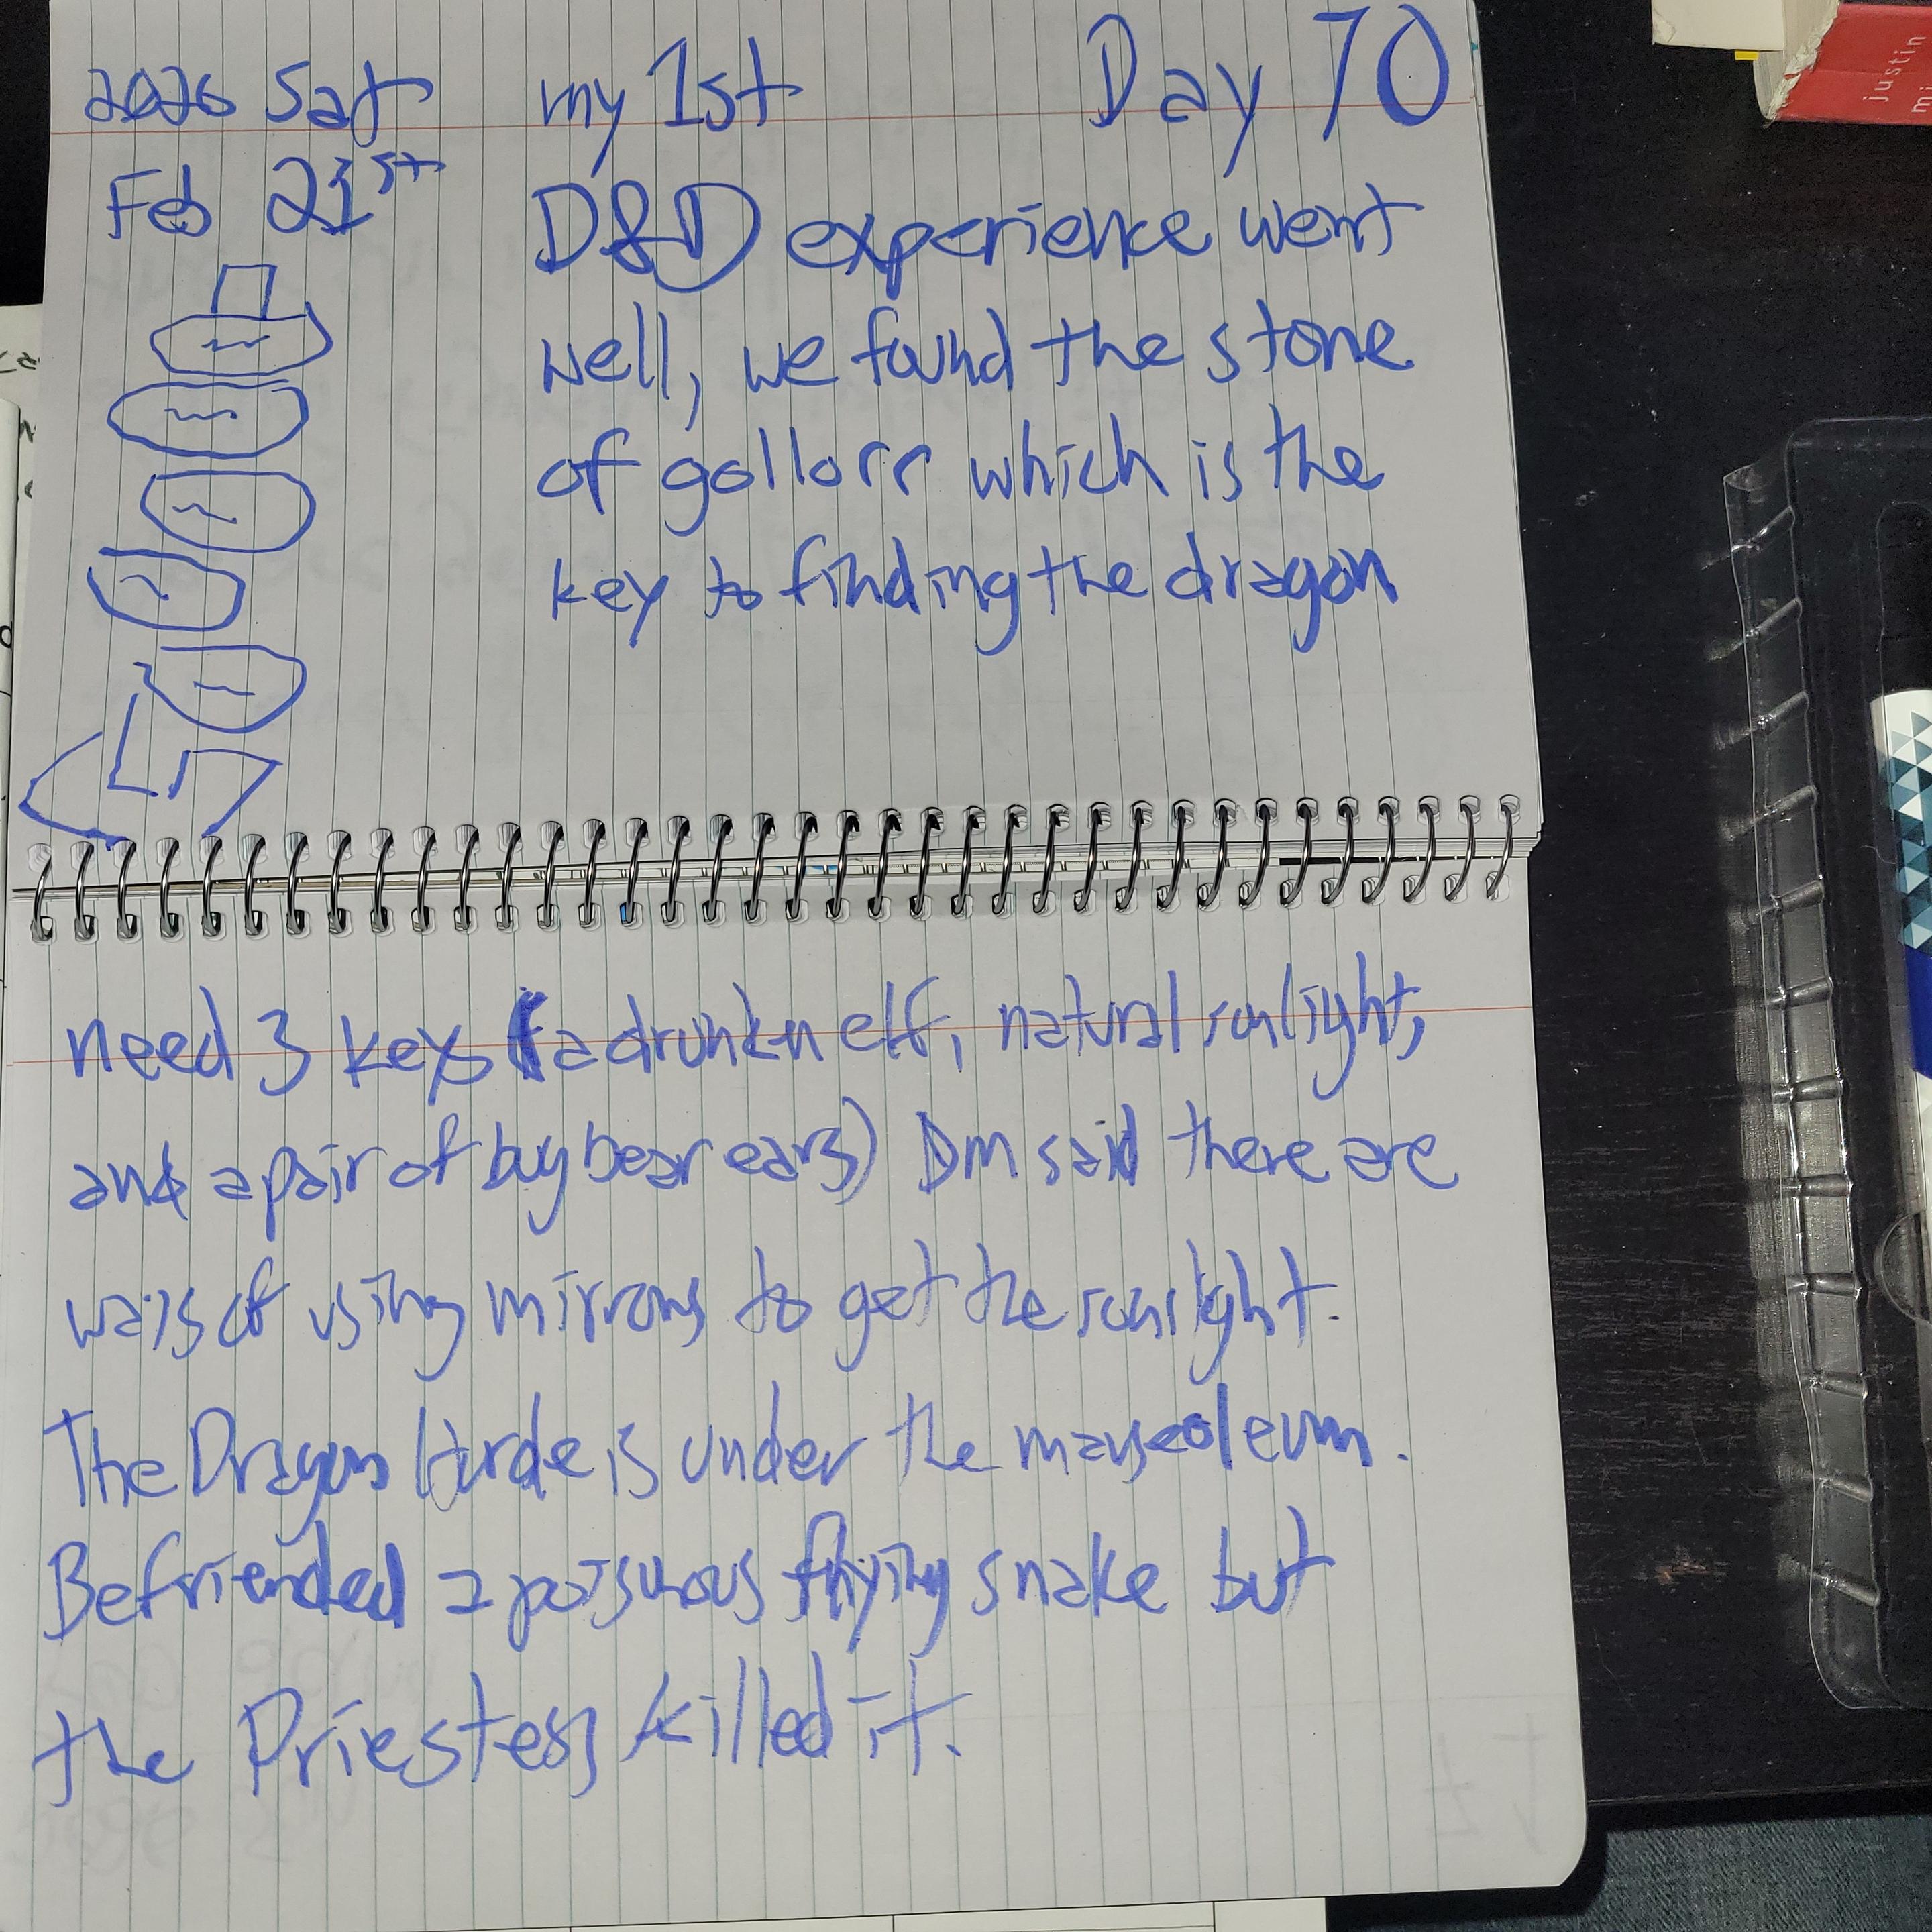 2026 Sat my 1st Day 70
Feb 21st D&D experience went
well, we found the stone
of gollorr which is the
key to finding the dragon
need 3 keys (a drunkn elf, natural sunlight,
and a pair of bugbear ears) DM said there are
ways of using mirrors to get the sunlight.
The Dragon Hurde is under the mauseoleum.
Befriended a poisunous flying snake but
the Priestess killed it.
justin
mi